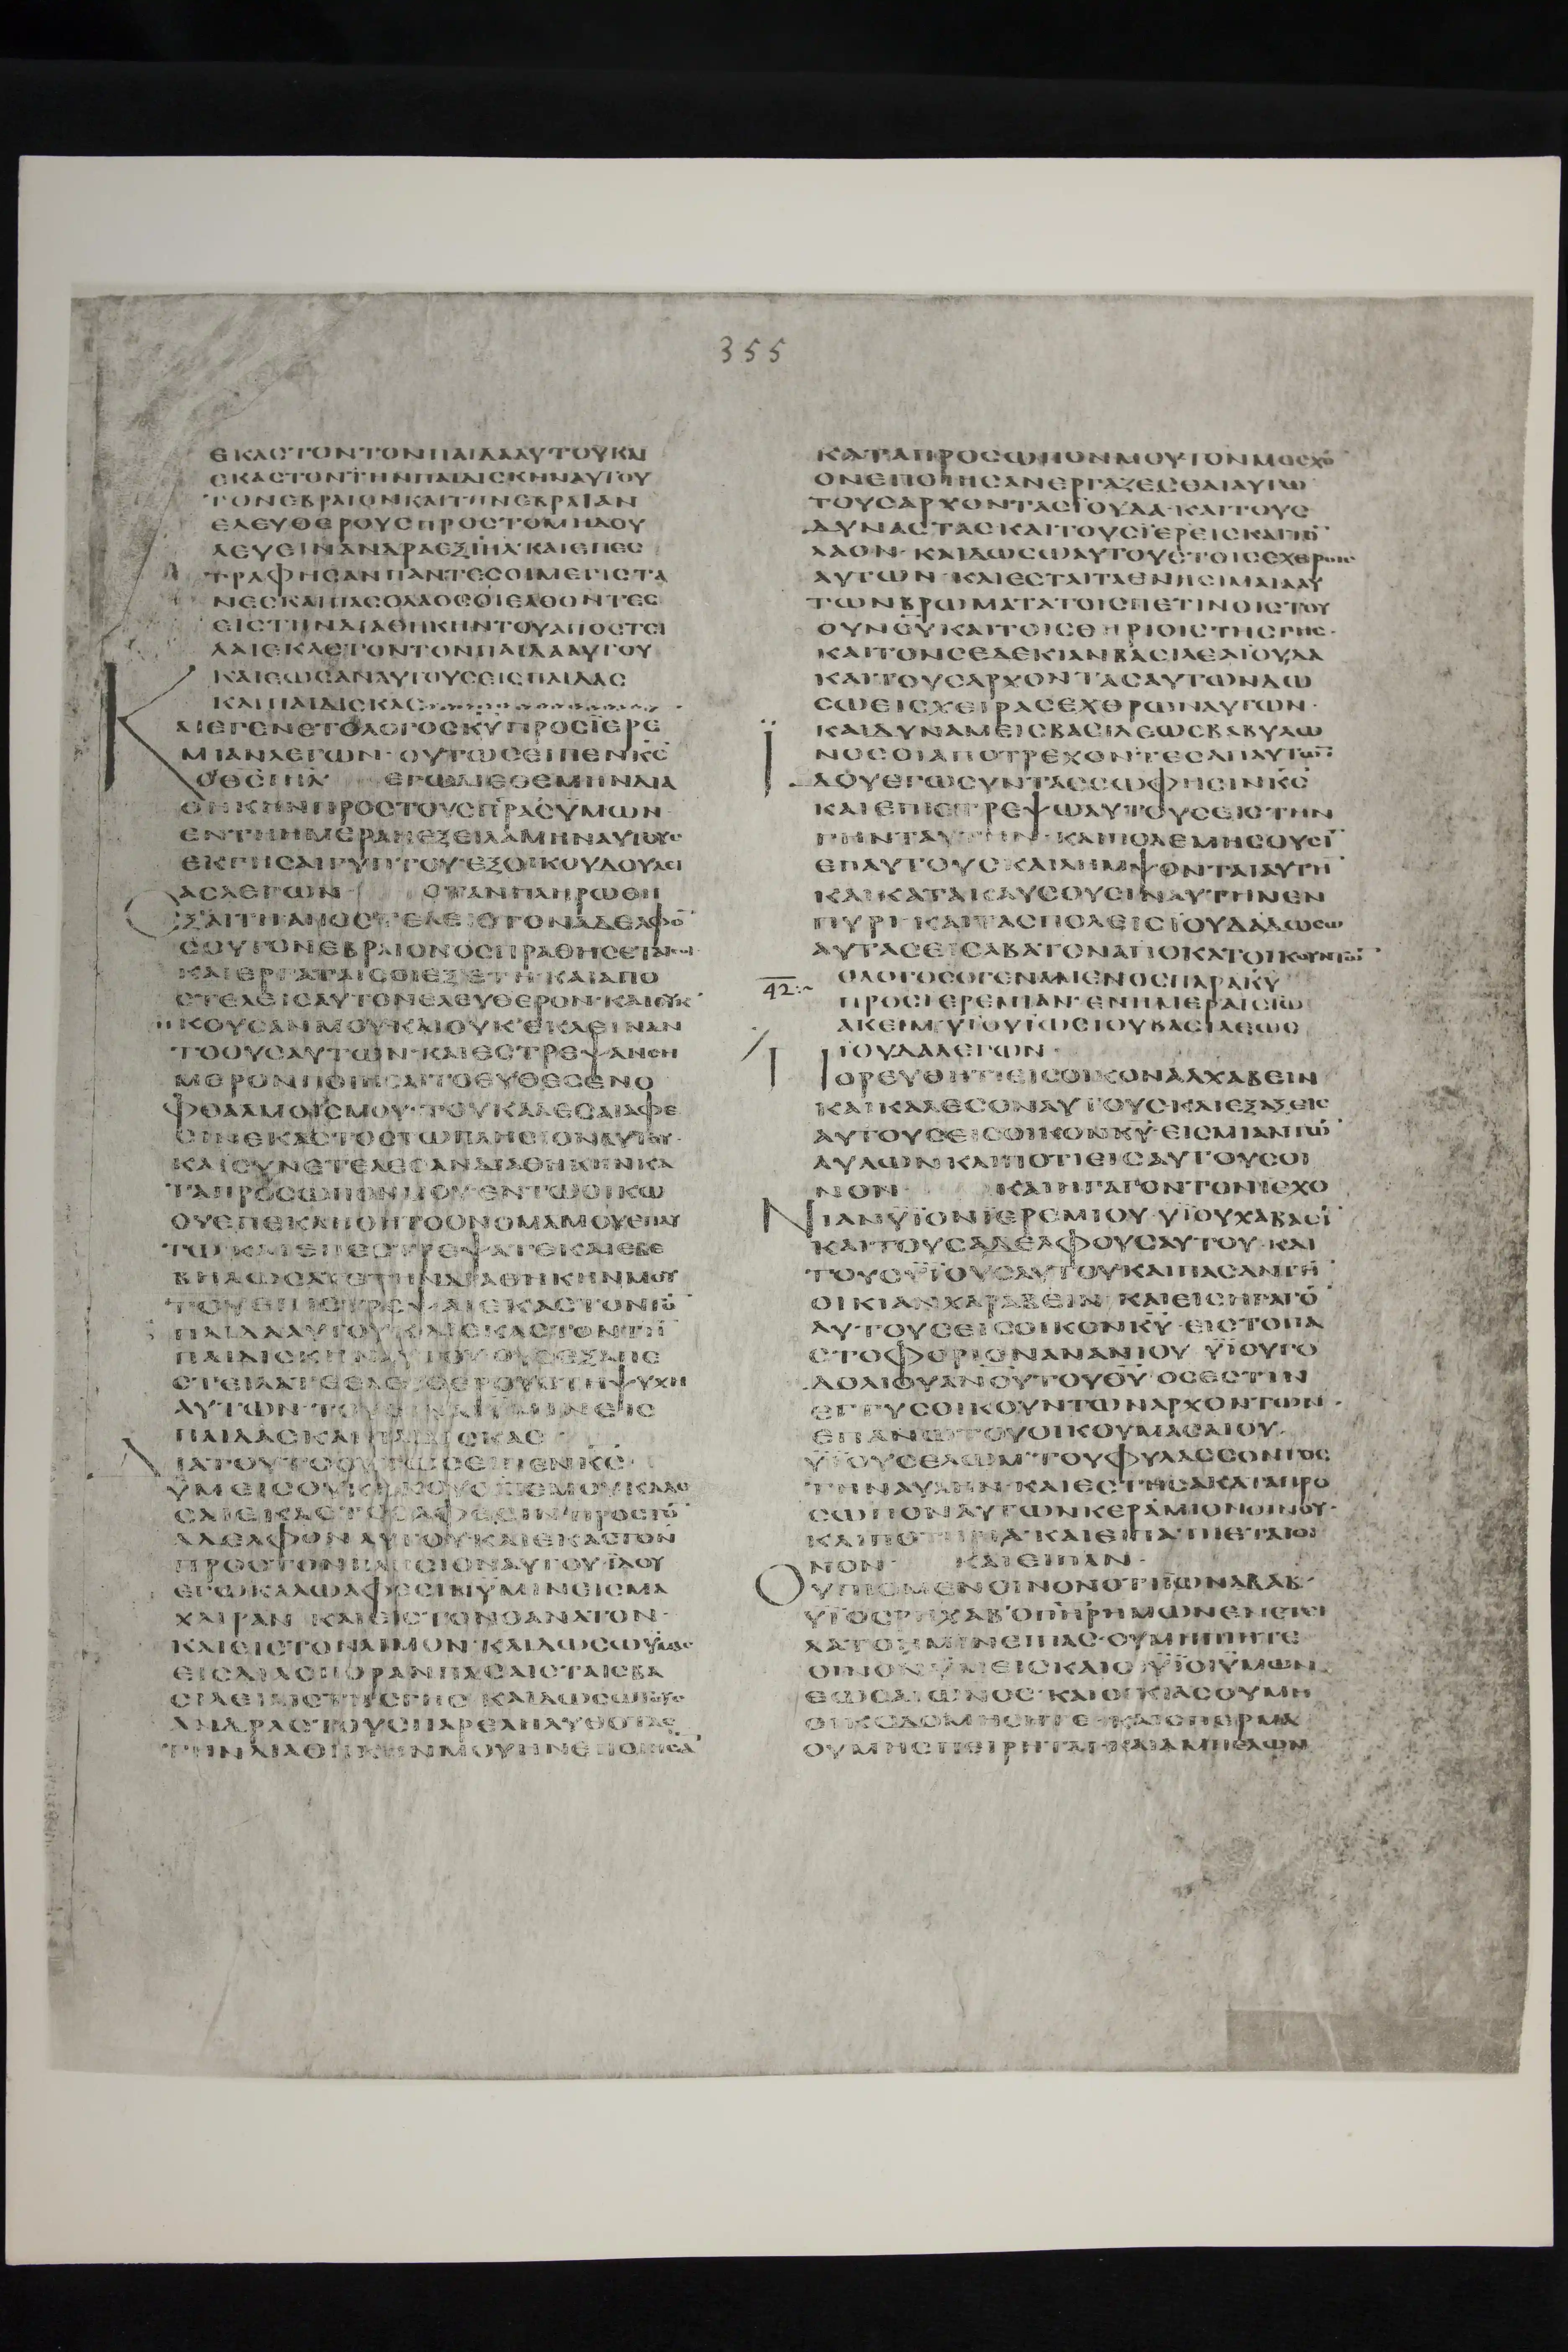 355
ΕΚΑΣΤΟΝΤΟΝΠΑΙΔΑΑΥΤΟΥΚΑΙ
ΕΚΑΣΤΟΝΤΗΝΠΑΙΔΙΣΚΗΝΑΥΤΟΥ
ΤΟΝΕΒΡΑΙΟΝΚΑΙΤΗΝΕΒΡΑΙΑΝ
ΕΛΕΥΘΕΡΟΥΣΠΡΟΣΤΟΜΗΔΟΥ
ΛΕΥΕΙΝΑΝΔΡΑΕΞΙΗΛ·ΚΑΙΕΠΕΣ
ΤΡΑΦΗΣΑΝΠΑΝΤΕΣΟΙΜΕΓΙΣΤΑ
ΝΕΣΚΑΙΠΑΣΟΛΑΟΣΟΙΕΛΘΟΝΤΕΣ
ΕΙΣΤΗΝΔΙΑΘΗΚΗΝΤΟΥΑΠΟΣΤΕΙ
ΛΑΙΕΚΑΣΤΟΝΤΟΝΠΑΙΔΑΑΥΤΟΥ
ΚΑΙΕΩΣΑΝΑΥΤΟΥΣΕΙΣΠΑΙΔΑΣ
ΚΑΙΠΑΙΔΙΣΚΑΣ
ΚΑΙΕΓΕΝΕΤΟΛΟΓΟΣΚΥΠΡΟΣΙΕΡΕ
ΜΙΑΝΛΕΓΩΝ·ΟΥΤΩΣΕΙΠΕΝΚΣ
ΟΘΣΙΗΛ ΕΓΩΔΙΕΘΕΜΗΝΔΙΑ
ΘΗΚΗΝΠΡΟΣΤΟΥΣΠΡΑΣΥΜΩΝ
ΕΝΤΗΗΜΕΡΑΗΕΞΕΙΛΑΜΗΝΑΥΤΟΥΣ
ΕΚΓΗΣΑΙΓΥΠΤΟΥ·ΕΞΟΙΚΟΥΔΟΥΛΕΙ
ΑΣΛΕΓΩΝ ΟΤΑΝΠΛΗΡΩΘΗ
ΕΞΑΙΤΗΑΠΟΣΤΕΛΕΙΣΤΟΝΑΔΕΛΦΟ
ΣΟΥΤΟΝΕΒΡΑΙΟΝΟΣΠΡΑΘΗΣΕΤΑΙΣΟΙ
ΚΑΙΕΡΓΑΤΑΙΣΟΙΕΞΕΤΗ·ΚΑΙΑΠΟ
ΣΤΕΛΕΙΣΑΥΤΟΝΕΛΕΥΘΕΡΟΝ·ΚΑΙΟΥΚ
ΗΚΟΥΣΑΝΜΟΥΚΑΙΟΥΚΕΚΛΕΙΝΑΝ
ΤΟΟΥΣΑΥΤΩΝ·ΚΑΙΕΣΤΡΕΨΑΝΣΗ
ΜΕΡΟΝΠΟΙΗΣΑΙΤΟΕΥΘΕΣΕΝΟ
ΦΘΑΛΜΟΙΣΜΟΥ·ΤΟΥΚΑΛΕΣΑΙΑΦΕ
ΣΙΝΕΚΑΣΤΟΣΤΩΠΛΗΣΙΟΝΑΥΤΟΥ·
ΚΑΙΣΥΝΕΤΕΛΕΣΑΝΔΙΑΘΗΚΗΝΚΑ
ΤΑΠΡΟΣΩΠΟΝΜΟΥ·ΕΝΤΩΟΙΚΩ
ΟΥΕΠΕΚΛΗΘΗΤΟΟΝΟΜΑΜΟΥΕΠΑΥ
ΤΩ·ΚΑΙΕΠΕΣΤΡΕΨΑΤΕΚΑΙΕΒΕ
ΒΗΛΩΣΑΤΕΤΗΝΔΙΑΘΗΚΗΝΜΟΥ
ΤΟΥΕΠΙΣΤΡΕΨΑΙΕΚΑΣΤΟΝΤΟ
ΠΑΙΔΑΑΥΤΟΥΚΑΙΕΚΑΣΤΟΝΤΗ
ΠΑΙΔΙΣΚΗΝΑΥΤΟΥ·ΟΥΣΕΞΑΠΕ
ΣΤΕΙΛΑΤΕΕΛΕΥΘΕΡΟΥΣΤΗΨΥΧΗ
ΑΥΤΩΝ·ΤΟΥΕΙΝΑΙΥΜΙΝΕΙΣ
ΠΑΙΔΑΣΚΑΙΠΑΙΔΙΣΚΑΣ
ΔΙΑΤΟΥΤΟΟΥΤΩΣΕΙΠΕΝΚΣ·
ΥΜΕΙΣΟΥΚΗΚΟΥΣΑΤΕΜΟΥΚΑΛΕ
ΣΑΙΕΚΑΣΤΟΣΑΦΕΣΙΝΠΡΟΣΤΟ
ΑΔΕΛΦΟΝΑΥΤΟΥΚΑΙΕΚΑΣΤΟΝ
ΠΡΟΣΤΟΝΠΛΗΣΙΟΝΑΥΤΟΥ·ΙΔΟΥ
ΕΓΩΚΑΛΩΑΦΕΣΙΝΥΜΙΝΕΙΣΜΑ
ΧΑΙΡΑΝ ΚΑΙΕΙΣΤΟΝΘΑΝΑΤΟΝ·
ΚΑΙΕΙΣΤΟΝΛΙΜΟΝ·ΚΑΙΔΩΣΩΥΜΑΣ
ΕΙΣΔΙΑΣΠΟΡΑΝΠΑΣΑΙΣΤΑΙΣΒΑ
ΣΙΛΕΙΑΙΣΤΗΣΓΗΣ ΚΑΙΔΩΣΩΤΟΥΣ
ΑΝΔΡΑΣΤΟΥΣΠΑΡΕΛΗΛΥΘΟΤΑΣ
ΤΗΝΔΙΑΘΗΚΗΝΜΟΥΗΝΕΠΟΙΗΣΑ
ΚΑΤΑΠΡΟΣΩΠΟΝΜΟΥΤΟΝΜΟΣΧΟ
ΟΝΕΠΟΙΗΣΑΝΕΡΓΑΖΕΣΘΑΙΑΥΤΩ
ΤΟΥΣΑΡΧΟΝΤΑΣΙΟΥΔΑ·ΚΑΙΤΟΥΣ
ΔΥΝΑΣΤΑΣΚΑΙΤΟΥΣΙΕΡΕΙΣΚΑΙΤΟ
ΛΑΟΝ·ΚΑΙΔΩΣΩΑΥΤΟΥΣΤΟΙΣΕΧΘΡΟΙΣ
ΑΥΤΩΝ·ΚΑΙΕΣΤΑΙΤΑΘΝΗΣΙΜΑΙΑΑΥ
ΤΩΝΒΡΩΜΑΤΑΤΟΙΣΠΕΤΙΝΟΙΣΤΟΥ
ΟΥΝΟΥΚΑΙΤΟΙΣΘΗΡΙΟΙΣΤΗΣΓΗΣ·
ΚΑΙΤΟΝΣΕΔΕΚΙΑΝΒΑΣΙΛΕΑΙΟΥΔΑ
ΚΑΙΤΟΥΣΑΡΧΟΝΤΑΣΑΥΤΩΝΔΩ
ΣΩΕΙΣΧΕΙΡΑΣΕΧΘΡΩΝΑΥΤΩΝ·
ΚΑΙΔΥΝΑΜΕΙΣΒΑΣΙΛΕΩΣΒΑΒΥΛΩ
ΝΟΣΟΙΑΠΟΤΡΕΧΟΝΤΕΣΑΠΑΥΤΩΝ
ΙΔΟΥΕΓΩΣΥΝΤΑΣΣΩΦΗΣΙΝΚΣ
ΚΑΙΕΠΙΣΤΡΕΨΩΑΥΤΟΥΣΕΙΣΤΗΝ
ΓΗΝΤΑΥΤΗΝ·ΚΑΙΠΟΛΕΜΗΣΟΥΣΙ
ΕΠΑΥΤΟΥΣΚΑΙΛΗΜΨΟΝΤΑΙΑΥΤΗ
ΚΑΙΚΑΤΑΚΑΥΣΟΥΣΙΝΑΥΤΗΝΕΝ
ΠΥΡΙ·ΚΑΙΤΑΣΠΟΛΕΙΣΙΟΥΔΑΔΩΣΩ
ΑΥΤΑΣΕΙΣΑΒΑΤΟΝΑΠΟΚΑΤΟΙΚΟΥΝΤΩ
42
ΟΛΟΓΟΣΟΓΕΝΑΜΕΝΟΣΠΑΡΑΚΥ
ΠΡΟΣΙΕΡΕΜΙΑΝ·ΕΝΗΜΕΡΑΙΣΙΩ
ΑΚΕΙΜΥΙΟΥΙΩΣΙΟΥΒΑΣΙΛΕΩΣ
ΙΟΥΔΑΛΕΓΩΝ·
ΠΟΡΕΥΘΗΤΙΕΙΣΟΙΚΟΝΑΛΧΑΒΕΙΝ
ΚΑΙΚΑΛΕΣΟΝΑΥΤΟΥΣ·ΚΑΙΕΞΑΞΕΙΣ
ΑΥΤΟΥΣΕΙΣΟΙΚΟΝΚΥ·ΕΙΣΜΙΑΝΤΩ
ΑΥΛΩΝΚΑΙΠΟΤΙΕΙΣΑΥΤΟΥΣΟΙ
ΝΟΝ· ΚΑΙΗΓΑΓΟΝΤΟΝΙΕΧΟ
ΝΙΑΝΥΙΟΝΙΕΡΕΜΙΟΥ·ΥΙΟΥΧΑΒΑΣΙ
ΚΑΙΤΟΥΣΑΔΕΛΦΟΥΣΑΥΤΟΥ·ΚΑΙ
ΤΟΥΣΥΙΟΥΣΑΥΤΟΥΚΑΙΠΑΣΑΝΤΗ
ΟΙΚΙΑΝΧΑΡΑΒΕΙΝ ΚΑΙΕΙΣΗΓΑΓΟ
ΑΥΤΟΥΣΕΙΣΟΙΚΟΝΚΥ·ΕΙΣΤΟΠΑ
ΣΤΟΦΟΡΙΟΝΑΝΑΝΙΟΥ ΥΙΟΥΓΟ
ΔΟΛΙΟΥΑΝΟΥΤΟΥΘΥ ΟΣΕΣΤΙΝ
ΕΓΓΥΣΟΙΚΟΥΝΤΩΝΑΡΧΟΝΤΩΝ·
ΕΠΑΝΩΤΟΥΟΙΚΟΥΜΑΣΑΙΟΥ·
ΥΙΟΥΣΕΛΩΜ·ΤΟΥΦΥΛΑΣΣΟΝΤΟΣ
ΤΗΝΑΥΛΗΝ·ΚΑΙΕΣΤΗΣΑΚΑΤΑΠΡΟ
ΣΩΠΟΝΑΥΤΩΝΚΕΡΑΜΙΟΝΟΙΝΟΥ·
ΚΑΙΠΟΤΗΡΙΑ·ΚΑΙΕΙΠΑΠΙΕΤΑΙΟΙ
ΝΟΝ· ΚΑΙΕΙΠΑΝ·
ΟΥΠΙΟΜΕΝΟΙΝΟΝΟΤΙΙΩΝΑΔΑΒ·
ΥΙΟΣΡΗΧΑΒΟΠΗΡΗΜΩΝΕΝΕΤΕΙ
ΛΑΤΟΗΜΙΝΕΙΠΑΣ·ΟΥΜΗΠΙΗΤΕ
ΟΙΝΟΝΥΜΕΙΣΚΑΙΟΙΥΙΟΙΥΜΩΝ
ΕΩΣΑΙΩΝΟΣ·ΚΑΙΟΙΚΙΑΣΟΥΜΗ
ΟΙΚΟΔΟΜΗΣΗΤΕ·ΚΑΙΣΠΕΡΜΑ
ΟΥΜΗΣΠΕΙΡΗΤΑΙ·ΚΑΙΑΜΠΕΛΩΝ